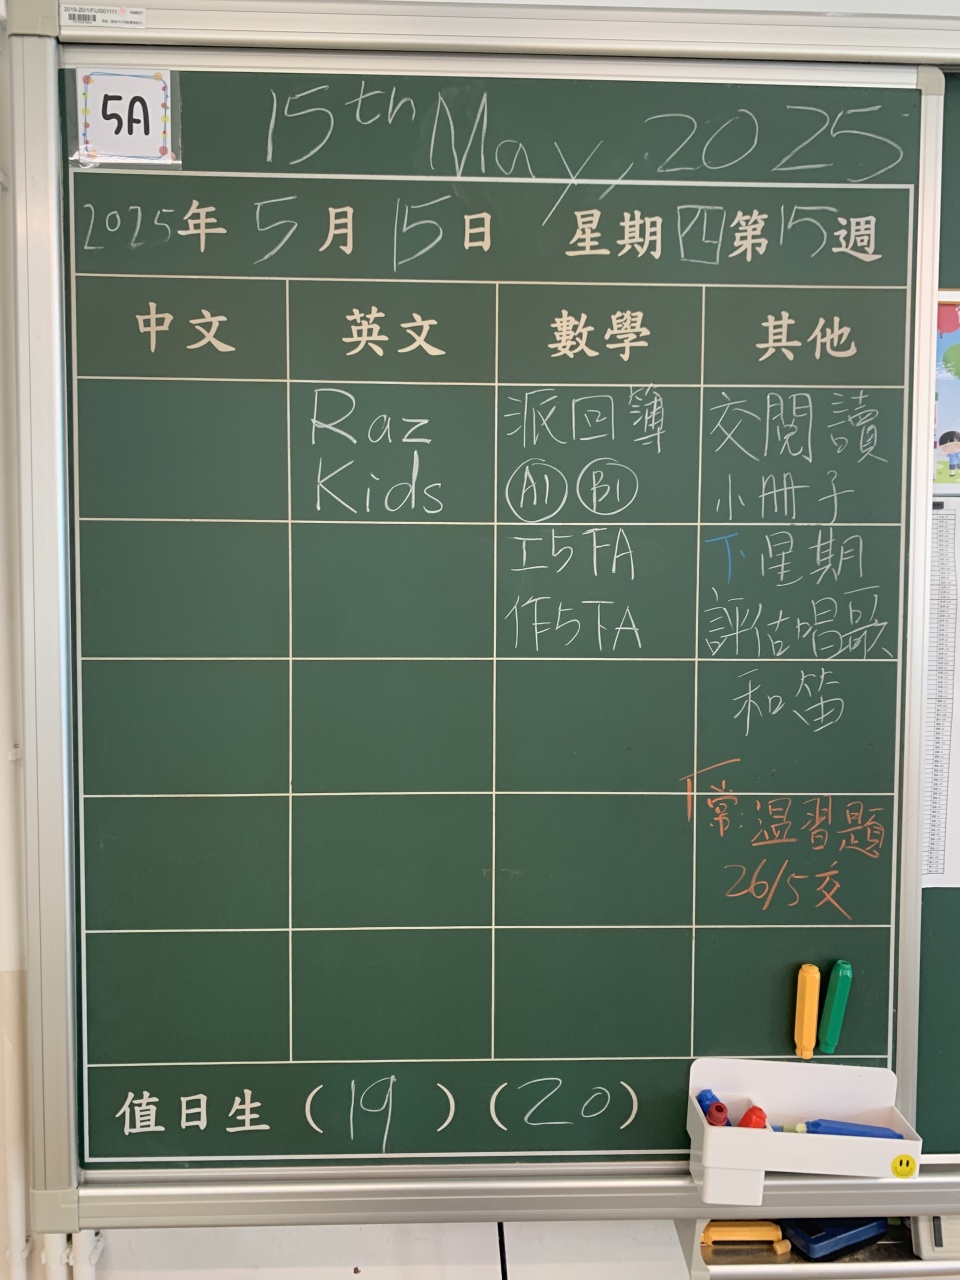 2019-20/1/FU/001111
5A
15th May, 2025
2025年 5月 15日 星期四 第15週
中文 英文 數學 其他
Raz
Kids
派回簿
A1 B1
工5下A
作5下A
交閱讀
小冊子
下星期
評估唱歌
和笛
常:溫習題
26/5交
值日生 (19) (20)